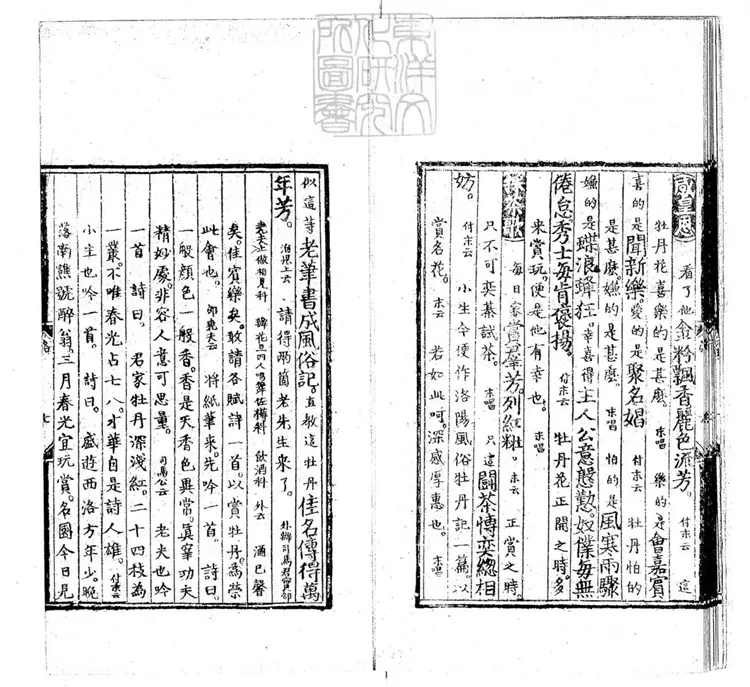 東洋文
化研究
所圖書
看了他金粉飄香麗色流芳。付末云 這
牡丹花喜樂的是甚麼。末唱 樂的是會嘉賓
喜的是聞新樂。愛的是聚名娼 付末云 牡丹怕的
是甚麼。嫌的是甚麼。末唱 怕的是風寒雨驟
嫌的是蝶浪蜂狂。幸喜得主人公意慇懃。奴僕每無
倦怠秀士每肯褒揚。付末云 牡丹花正開之時。多
來賞玩。便是他有幸也。末唱
每日家賞羣芳。列紅粧。末云 正賞之時。
只不可奕棊試茶。末唱 只這鬪茶愽奕緫相
妨。付末云 小生今便作洛陽風俗牡丹記一篇。以
賞名花。末云 若如此呵。深感厚惠也。末唱
似這等老筆書成風俗記。直教這牡丹佳名傳得萬
年芳。上云 請得兩箇老先生來了。外辦司馬君實邵
堯夫上做相見科 辦花旦四人唱舞佐樽科 飲酒科 外云 酒已馨
矣。佳賓樂矣。敢請各賦詩一首。以賞牡丹。為榮
此會也。邵堯夫云 將紙筆來。先吟一首。詩曰。
一般顏色一般香。香是天香色異常。真宰功夫
精妙處。非容人意可思量。司馬公云 老夫也吟
一首詩曰。君家牡丹深淺紅。二十四枝為
一叢。不唯春光占七八。才華自是詩人雄。付末云
小生也吟一首。詩曰。盛遊西洛方年少。晚
落南譙號醉翁。三月春光宜玩賞。名園今日見